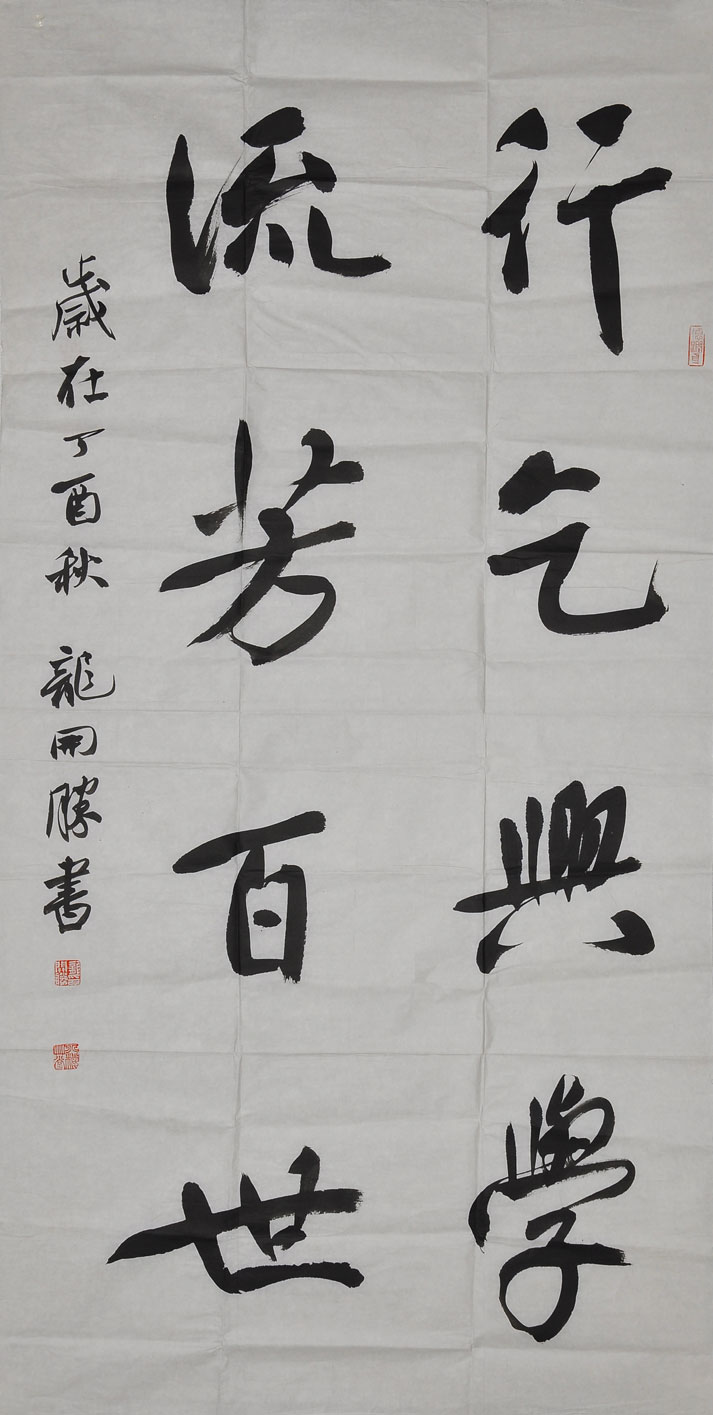 行乞興學
流芳百世
歲在丁酉秋 龍開勝書